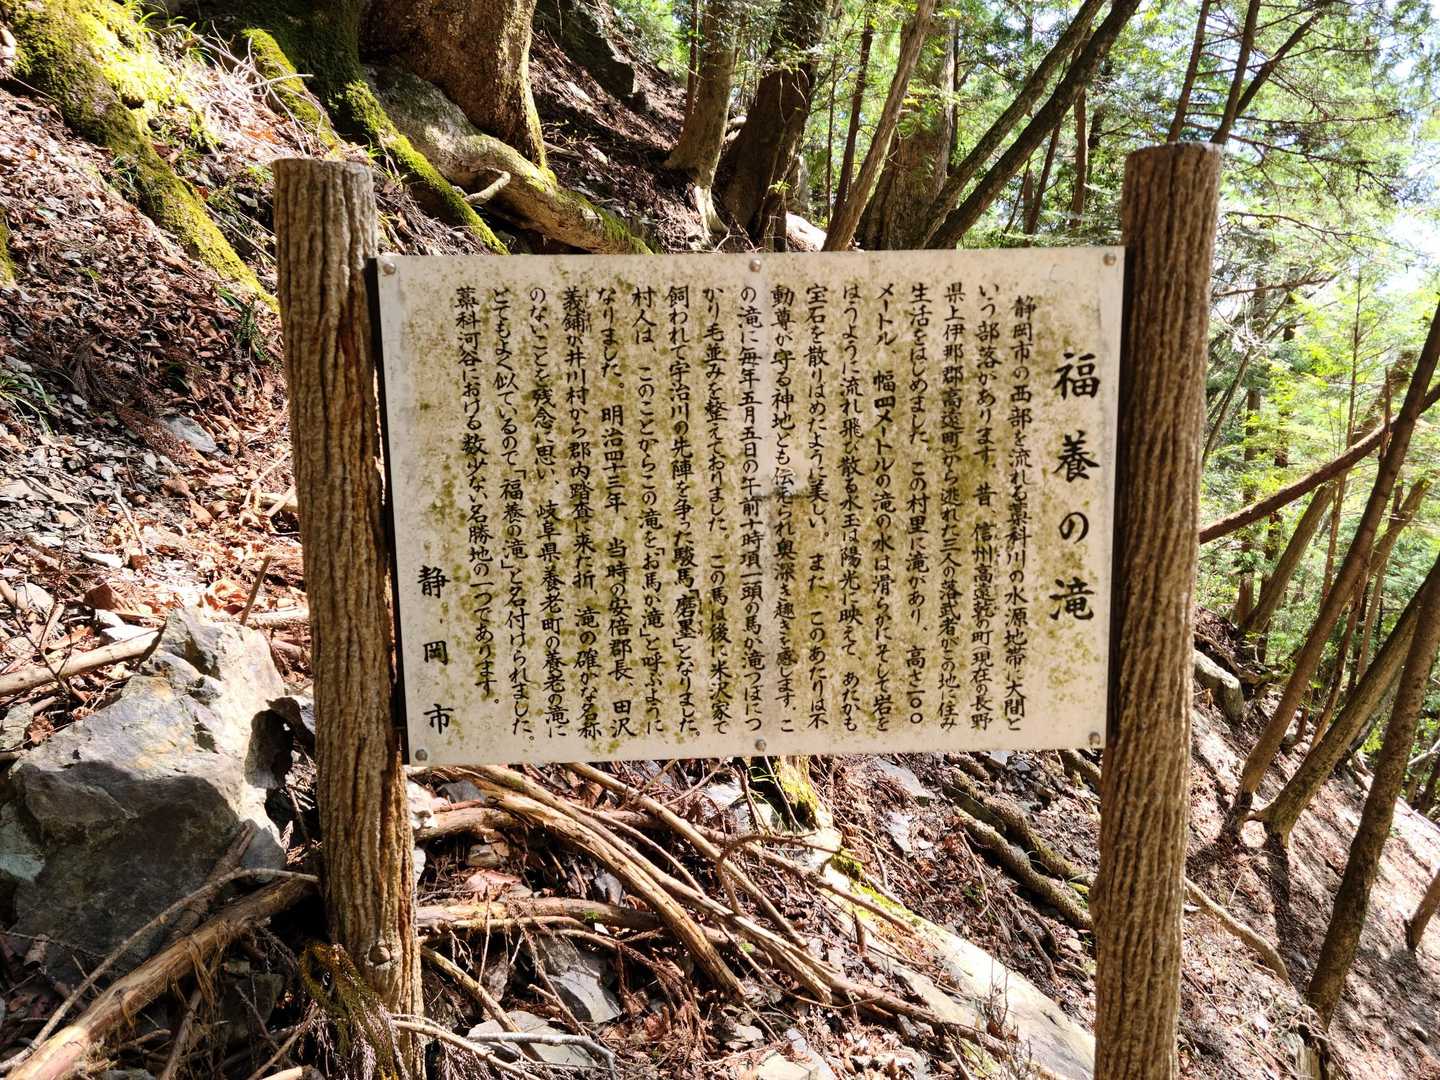 福養の滝
静岡市の西部を流れる藁科川の水源地帯に大間と
いう部落があります。昔、信州高遠乾の町(現在の長野
県上伊那郡高遠町)から逃れた三人の落武者がこの地に住み
生活をはじめました。この村里に滝があり、高さ一〇〇
メートル、幅四メートルの滝の水は滑らかにそして岩を
はうように流れ飛び散る水玉は陽光に映えて、あたかも
宝石を散りばめたように美しい。また、このあたりは不
動尊が守る神地とも伝えられ奥深き趣きを感します。こ
の滝に毎年五月五日の午前十時頃一頭の馬が滝つぼにつ
かり毛並みを整えておりました。この馬は後に米沢家で
飼われて宇治川の先陣を争った駿馬「磨墨」となりました。
村人は、このことからこの滝を「お馬が滝」と呼ぶように
なりました。明治四十三年、当時の安倍郡長、田沢
義鋪が井川村から郡内踏査に来た折、滝の確かな名称
のないことを残念に思い、岐阜県養老町の養老の滝に
とてもよく似ているので「福養の滝」と名付けられました。
藁科河谷における数少ない名勝地の一つであります。
静岡市